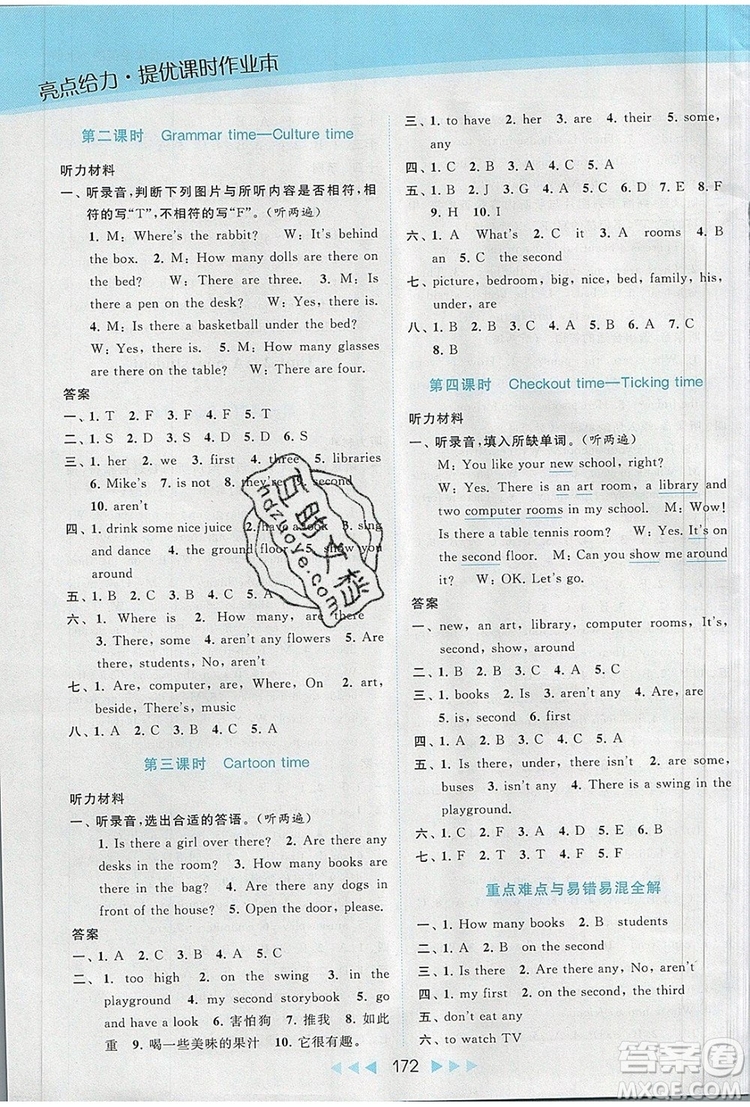 亮点给力·提优课时作业本
第二课时 Grammar time—Culture time
听力材料
一、听录音,判断下列图片与所听内容是否相符,相
符的写“T”,不相符的写“F”。(听两遍)
1. M: Where's the rabbit? W: It's behind
the box. 2. M: How many dolls are there on
the bed? W: There are three. 3. M: Is
there a pen on the desk? W: Yes, there is.
4. M: Is there a basketball under the bed?
W: Yes, there is. 5. M: How many glasses
are there on the table? W: There are four.
答案
一、1. T 2. F 3. F 4. T 5. T
二、1. S 2. D 3. S 4. D 5. D 6. S
三、1. her 2. we 3. first 4. three 5. libraries
6. Mike's 7. isn't 8. they're 9. second
10. aren't
四、1. drink some nice juice 2. have a look 3. sing
and dance 4. the ground floor 5. show you
around
五、1. B 2. C 3. A 4. B 5. C
六、1. Where is 2. How many, are there
3. There's some 4. aren't any flowers 5. Are
there, students, No, aren't
七、1. Are, computer, are, Where 2. On, art,
beside, There's, music
八、1. A 2. C 3. B 4. C 5. A
第三课时 Cartoon time
听力材料
一、听录音,选出合适的答语。(听两遍)
1. Is there a girl over there? 2. Are there any
desks in the room? 3. How many books are
there in the bag? 4. Are there any dogs in
front of the house? 5. Open the door, please.
答案
一、1. A 2. A 3. C 4. B 5. C
二、1. too high 2. on the swing 3. in the
playground 4. my second storybook 5. go
and have a look 6. 害怕狗 7. 推我 8. 如此
重 9. 喝一些美味的果汁 10. 它很有趣。
三、1. to have 2. her 3. are 4. their 5. some,
any
四、1. C 2. B 3. C 4. C 5. A
五、1. B 2. J 3. G 4. D 5. C 6. A 7. E 8. F
9. H 10. I
六、1. A What's 2. C it 3. A rooms 4. B
an 5. C the second
七、picture, bedroom, big, nice, bed, family, his,
under, are
八、1. B 2. B 3. A 4. C 5. C 6. A 7. C 8. A
9. B
第四课时 Checkout time—Ticking time
听力材料
一、听录音,填入所缺单词。(听两遍)
M: You like your new school, right?
W: Yes. There's an art room, a library and
two computer rooms in my school. M: Wow!
Is there a table tennis room? W: Yes. It's on
the second floor. M: Can you show me around
it? W: OK. Let's go.
答案
一、new, an art, library, computer rooms, It's,
second, show, around
二、1. B 2. B 3. C 4. A 5. C
三、1. books 2. Is 3. aren't any 4. Are, are
5. is, second 6. first
四、1. A 2. C 3. C 4. C 5. A
五、1. some 2. isn't any 3. Are there, any,
buses 4. isn't any 5. There is a swing in the
playground.
六、1. C 2. F 3. A 4. D 5. E 6. B
七、1. F 2. F 3. F 4. T 5. F
重点难点与易错易混全解
一、1. How many books 2. B students
二、1. A 2. on the second
三、1. Is there 2. Are there any/No, aren't
四、1. my first 2. on the second, the third
五、don't eat any
六、to watch TV
172
百助文档
ndzuoye.com
答案圈
MXQE.COM